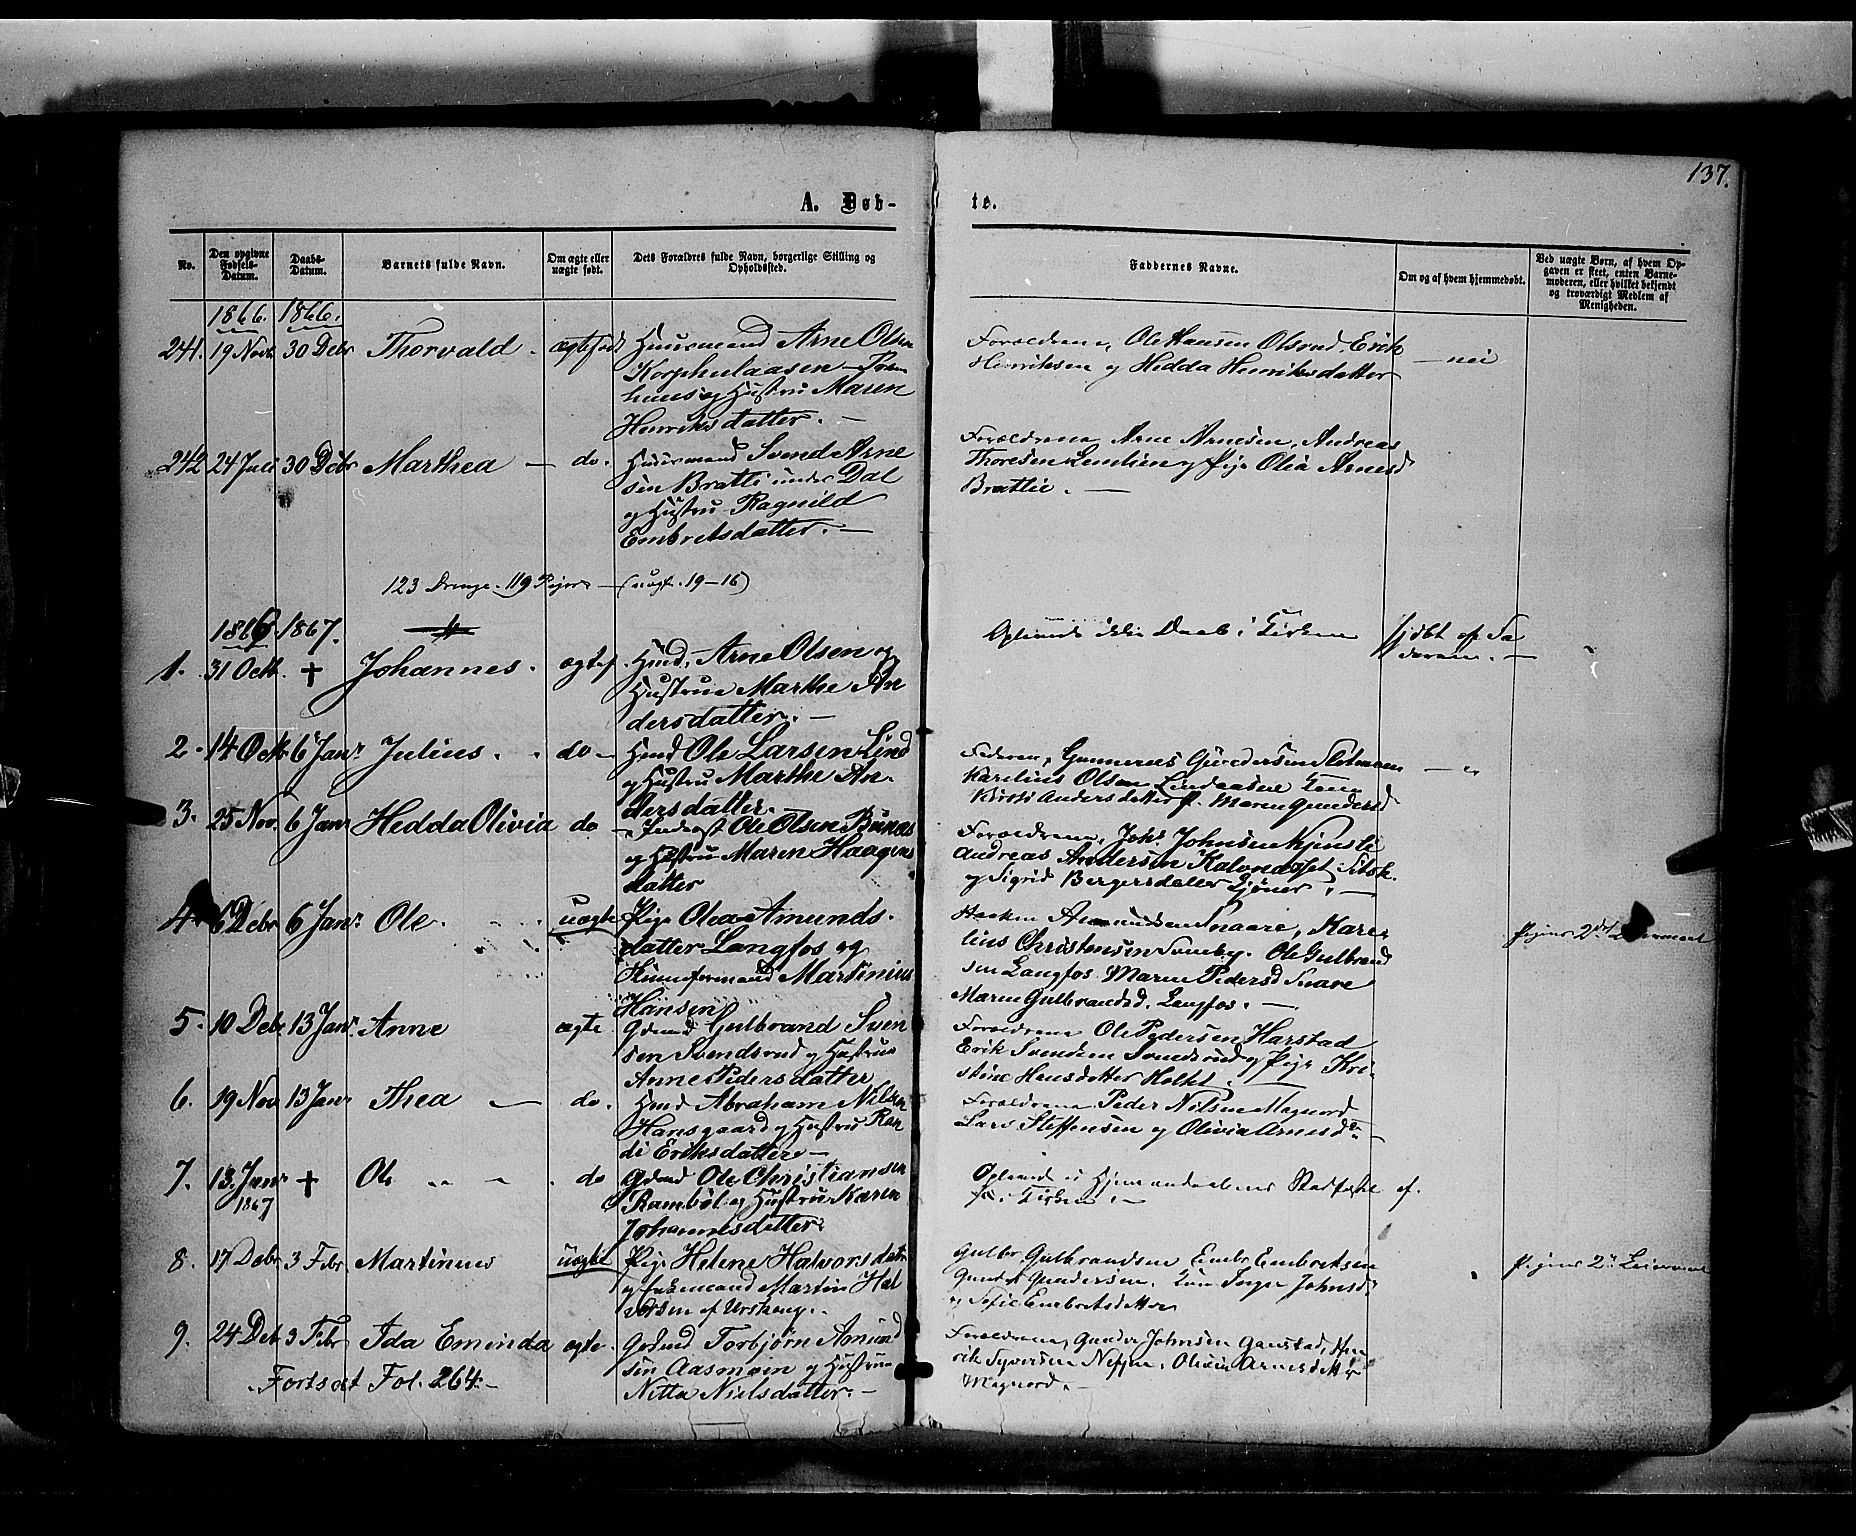 137.
A. Døb- te.
No.
Den opgivne Fødsels-Datum.
Daabs-Datum.
Barnets fulde Navn.
Om ægte eller uægte født.
Dets Forældres fulde Navn, borgerlige Stilling og Opholdssted.
Faddernes Navne.
Om og af hvem hjemmedøbt.
Ved uægte Børn, af hvem Opgaven er skeet, enten Barnemoderen, eller hvilket bekjendt og troværdigt Medlem af Menigheden.
1866. 1866.
241. 19 Novb 30 Debr Thorvald - ægtefød Huusmand Arne Olsen
Korphulaasen
og Hustru Maren
Henriksdatter. -
Forældrene, Ole Hansen Olsrud, Erik
Henriksen og Hedda Henriksdatter
- nei
242 24 Juli 30 Debr Marthea - do. Huusmand Svend Arne
sen Bratli under Dal
og Hustru Ragnild
Embretsdatter. -
Forældrene, Arne Arnesen, Andreas
Thoresen Lemlien og Pige Olia Arnesd
Brattlie. -
123 Drenge. 119 Piger - (uægt. 19-16)
1866 1867.
1. 31 Octb. + Johannes. ægtef. Hmd, Arne Olsen og
Hustrue Marthe An
dersdatter. -
Daab i Kirken
døbt af
2. 14 Octb. 6 Janr Julius. do - Hmd Ole Larsen Lind
og Hustru Marthe An-
dersdatter.
Faderen, Gunnerus Gundersen
Karelius Olsen
Kirsti Andersdatter Maren Gundersd
3. 25 Nov. 6 Janr Hedda Olivia do - Inderst Ole Olsen Bunæs
og Hustru Maren Haagens
datter
Forældrene, Johs. Johnsen
Andreas Andersen
og Sigrid Bergersdatter -
4. 6 Debr 6 Janr Ole. uægte Pige Olea Amunds
datter Langfos og
Martinius
Hansen
Haaken Amundsen Snaare, Kare-
lius Christensen Ole Gulbrand
sen Langfos. Maren Pedersd Snare
Maren Gulbrandsd. Langfos. -
Pigens 2det Leiermaal
5. 10 Debr 13 Janr. Anne ægte Gdmd Gulbrand Sven
sen Svendsrud og Hustrue
Anne Pedersdatter
Forældrene Ole Pedersen Harstad
Erik Svendsen Svendsrud og Pige Kri-
stine Hansdatter Holtet. -
6. 19 Nov 13 Janr Thea - do. Hmd Abraham Nilsen
Hansgaard og Hustru Ran
di Eriksdatter -
Forældrene Peder Nilsen Magnord
Lars Steffensen og Olivia Arnesdr
7. 13. Janr 1867 + Ole do Gdmd Ole Christiansen
Rambøl og Hustru Karen
Johannesdatter
Hjemmedaabens Stadfæstelse
Kirken. -
8. 17 Debr 3 Febr Martinus uægte Pige Helene Halvorsdatr
og Martin Hal
vorsen af Urskoug.
Gulbr Gulbrandsen Embr Embretsen
Gundersen. Inger Johnsd
og Sofie Embretsdatter
Pigens 2et Leiermaal
9. 24 Deb 3 Febr Ida Eminda ægte. Gdmd Torbjørn Amund
sen Aasmoen og Hustrue
Netta Nielsdatter. -
Forældrene, Gunder Johnsen Gaustad, Hen
rik Syversen Olivia Arnesdatter
Magnord. -
Fortsat Fol. 264. -